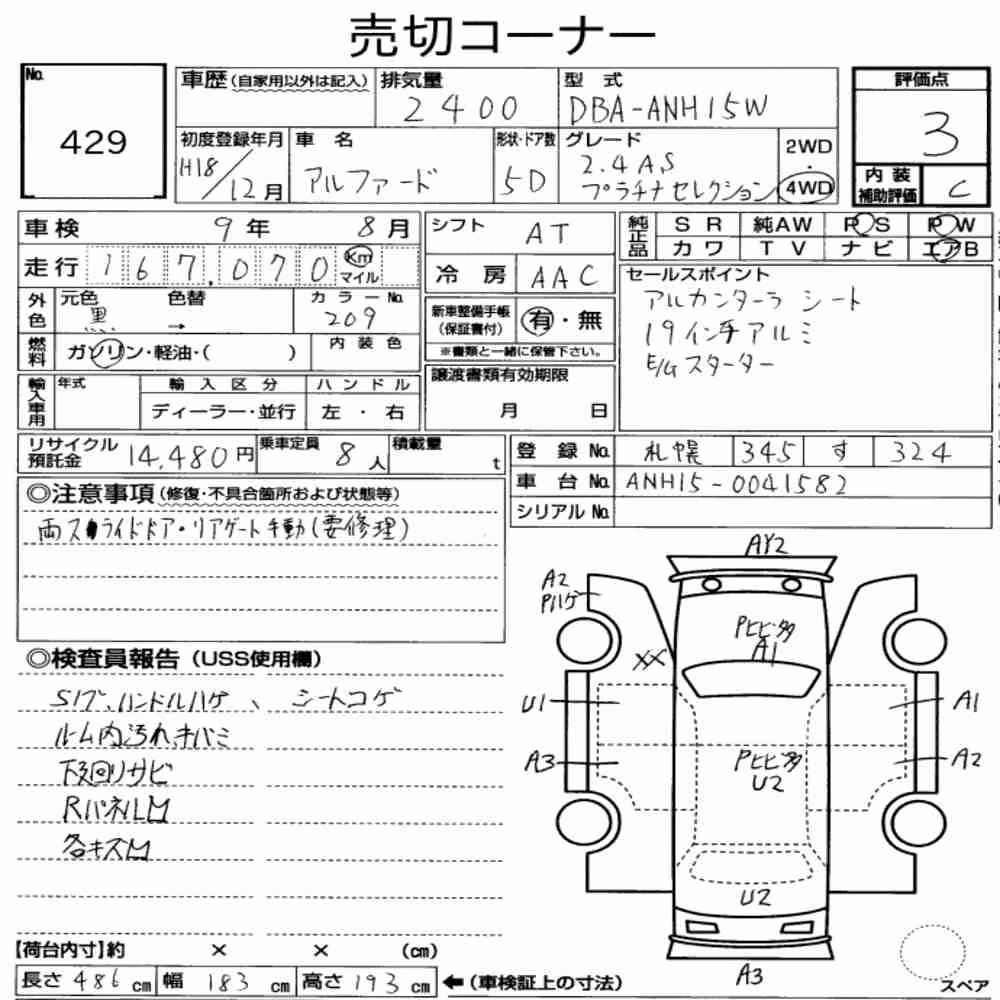 売切コーナー
No.
429
車歴(自家用以外は記入)
排気量
2400
型 式
DBA-ANH15W
評価点
3
内装
補助評価
C
初度登録年月
H18/12月
車 名
アルファード
形状・ドア数
5D
グレード
2.4AS
プラチナセレクション
2WD
・
4WD
車検 9年 8月
走行 167,070 Km マイル
外色 元色 黒 色替 → カラーNo. 209
燃料 ガソリン・軽油・( ) 内装色
輸入車用 年式 輸入区分 ハンドル
ディーラー・並行 左・右
シフト AT
冷 房 AAC
新車整備手帳
(保証書付) 有・無
※書類と一緒に保管下さい。
譲渡書類有効期限
月 日
純正品 SR 純AW PS PW
カワ TV ナビ エアB
セールスポイント
アルカンターラ シート
19インチアルミ
E/Gスターター
リサイクル
預託金 14,480円 乗車定員 8人 積載量 t
登 録 No. 札幌 345 す 324
車 台 No. ANH15-0041582
シリアルNo.
◎注意事項(修復・不具合箇所および状態等)
両スライドドア・リアゲート手動(要修理)
◎検査員報告(USS使用欄)
S17"、ハンドルハゲ、シートコゲ
ルーム内汚れキバミ
下廻りサビ
RパネルM
各キズM
AY2
A2
Pハゲ
Pヒビ多
A1
XX
U1
A1
A3
Pヒビ多
U2
A2
U2
A3
スペア
【荷台内寸】約 × × (cm)
長さ 486 cm 幅 183 cm 高さ 193 cm ←(車検証上の寸法)